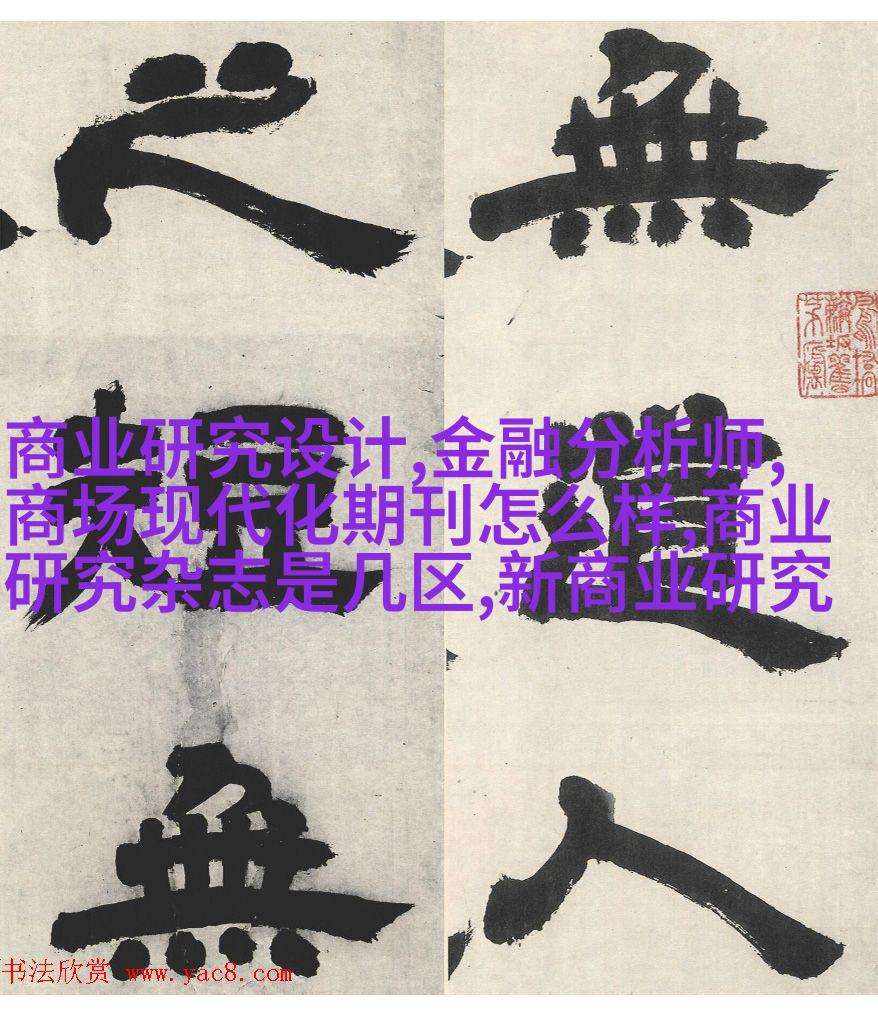 無道人
之短無
商业研究设计,金融分析师,
商场现代化期刊怎么样,商业
研究杂志是几区,新商业研究
书法欣赏 www.yac8.com